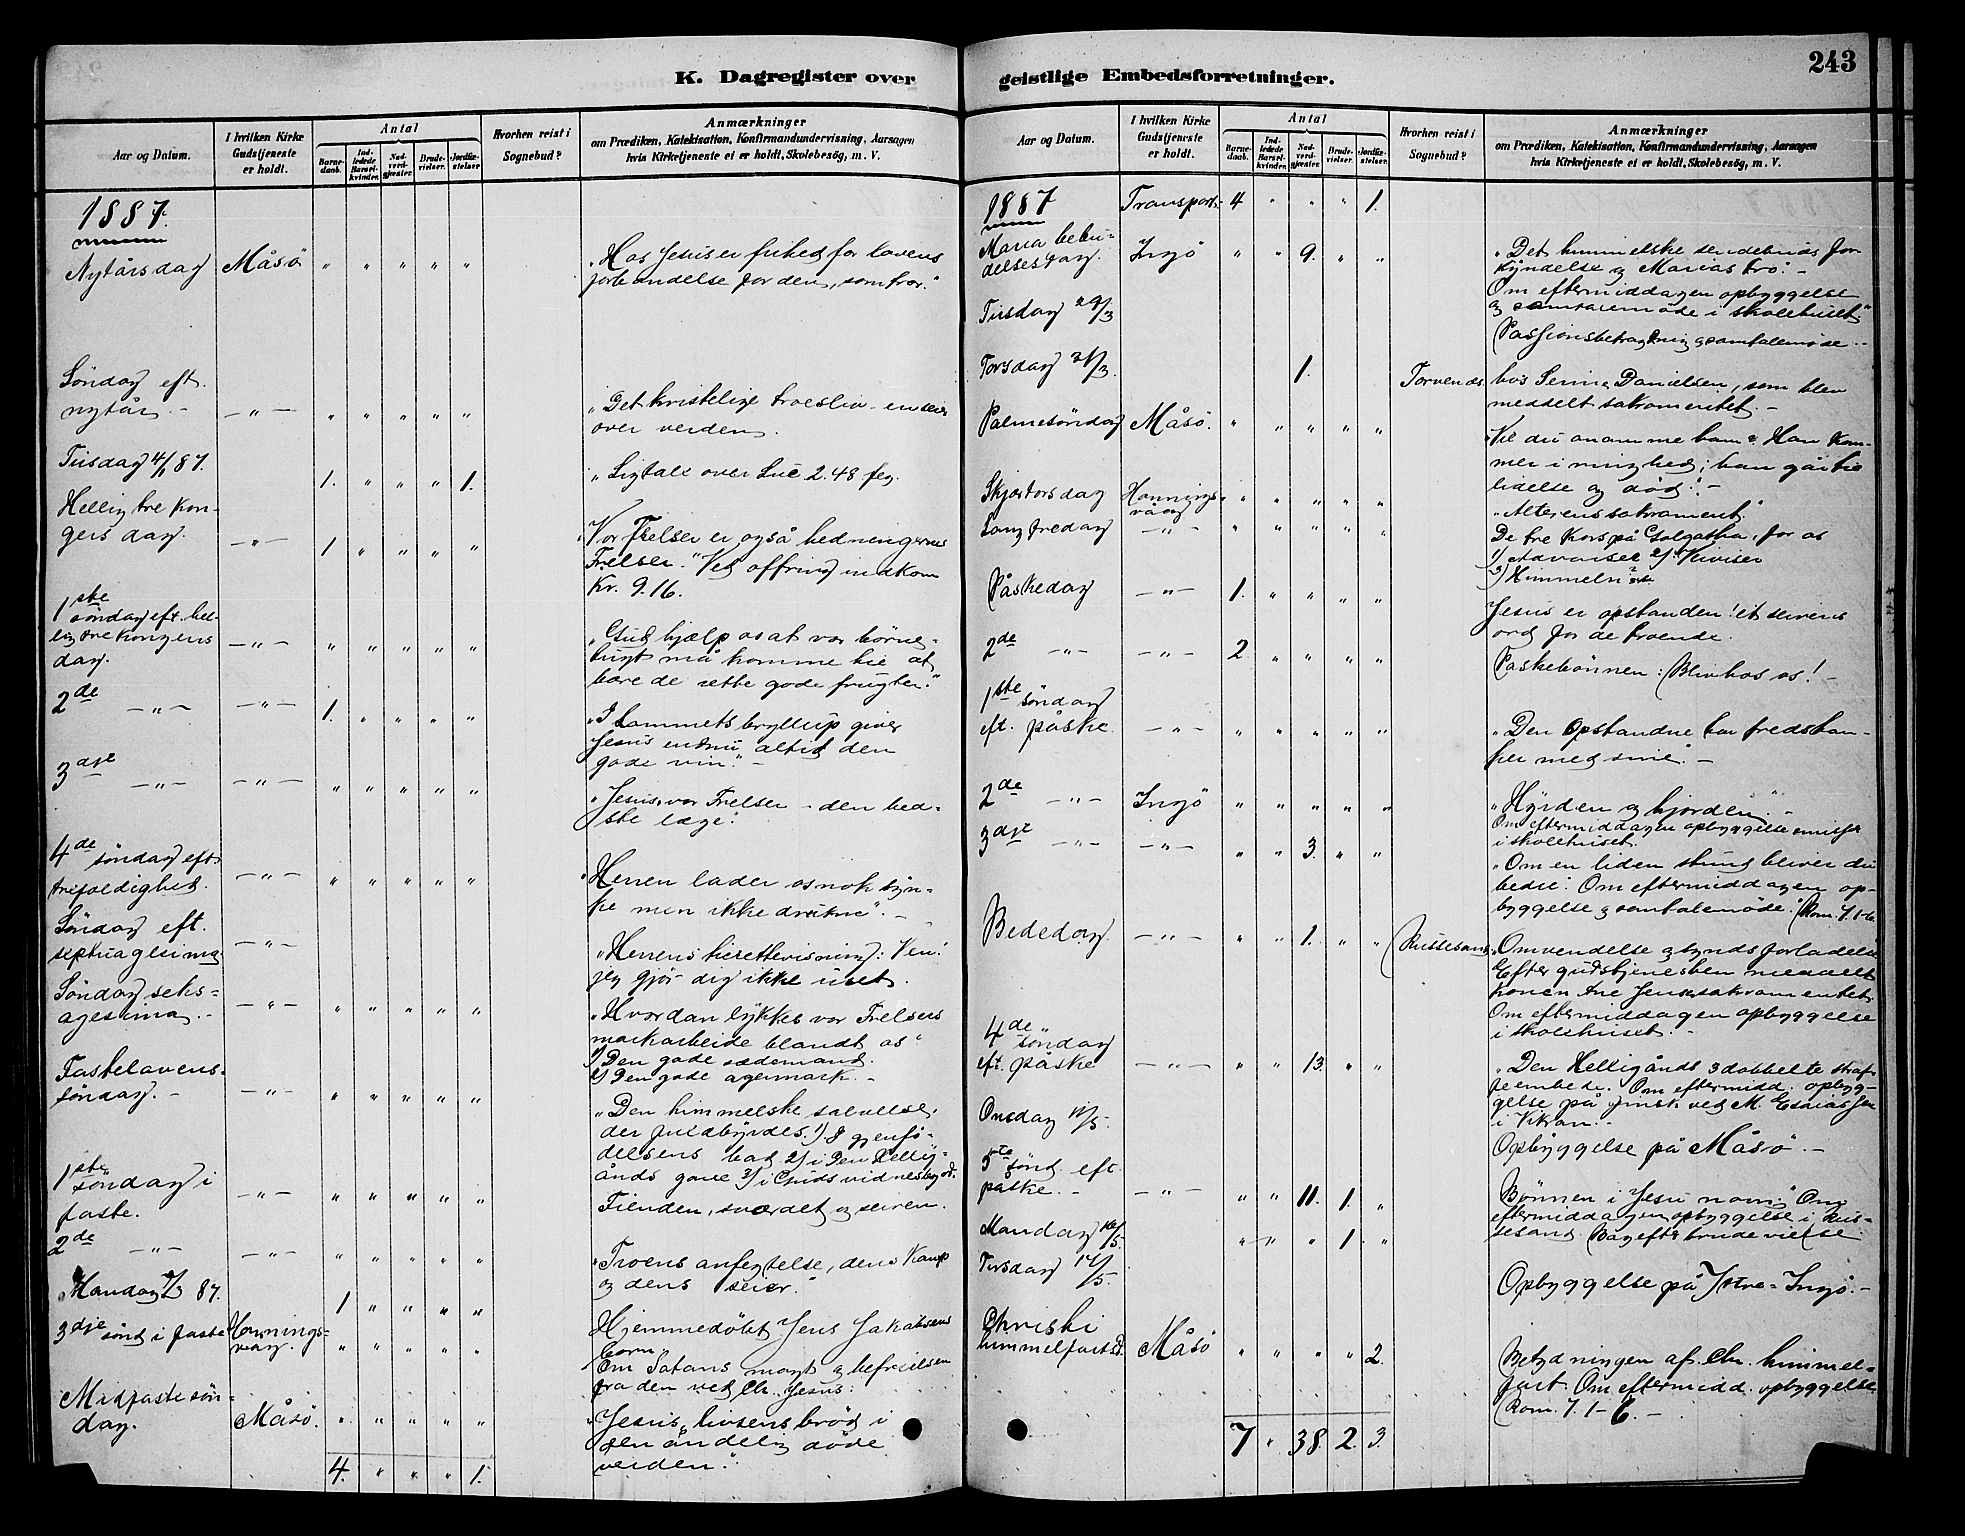 K. Dagregister over
Aar og Datum.
I hvilken Kirke
Gudstjeneste
er holdt.
Antal
Barne-
daab.
Ind-
ledede
Barsel-
kvinder.
Nad-
verd-
gjæster.
Brude-
vielser.
Jordfæ-
stelser.
Hvorhen reist i
Sognebud?
Anmærkninger
om Prædiken, Katekisation, Konfirmandundervisning, Aarsagen
hvis Kirketjeneste ei er holdt, Skolebesög, m. V.
1887.
Nytårsdag Måsö " " " " " „Hos Jesus er frihed for lovens
forbandelse for den, som tror."
Söndag eft.
nytår. - — " — " " " " " „Det kristelige troesliv - en seier
over verden.
Tirsdag 4/1 87. 1. " " " 1. „Ligtale over Luc 2.48 flg.
Hellig tre kon-
gers dag. — " — 1 " " " " „Vor Frelser er også hedningernes
Frelser." Ved offring indkom
Kr. 9.16.
1ste söndag eft. hel-
lig tre kongers
dag. — " — " " " " " „Gud hjælp os at vor börne-
tugt må komme til at
bære de rette gode frugter."
2de — " — — " — 1. " " " " „I Lammets bryllup giver
Jesus endnu altid den
gode vin." -
3dje — " — — " — " " " " " „Jesus, vor Frelser - den bed-
ste læge".
4de söndag eft
trefoldighed. — " — " " " " " „Herren lader os nok syn-
ke men ikke drukne". -
Söndag eft.
septuagesima — " — „Herrens irettevisning: Ven!
jeg gjör dig ikke uret.
Söndag seks-
agesima. - — " — " " " " " „Hvordan lykkes vor Frelsers
markarbeide blandt os"
1) Den gode sædemand.
2) Den gode agermark. -
Fastelavens-
söndag. - — " — " " " " " „Den himmelske salvelse.
der fuldbyrdes. 1) I gjenfö-
delsens bad 2) i Den Hellig-
ånds gave 3) i Guds vidnesbyrd.
1ste söndag i
faste. — " — " " " " " Fienden, sværdet og seiren.
2de — " — — " — " " " " " „Troens anfegtelse, dens Kamp
og dens seier."
Mandag 7/3 87. 1 " " " " Hjemmedöbt Jens Jakobsens
barn
3dje sönd i faste Honnings-
våg. " " " " " Om Satans magt og befrielsen
fra den ved Chr. Jesus:
Midfaste sön-
dag. Måsö. " " " " " „Jesus, livsens bröd i
den åndelig döde
verden".
4. " " " 1.
geistlige Embedsforretninger.
243
Aar og Datum.
I hvilken Kirke
Gudstjeneste
er holdt.
Antal
Barne-
daab.
Ind-
ledede
Barsel-
kvinder.
Nad-
verd-
gjæster.
Brude-
vielser.
Jordfæ-
stelser.
Hvorhen reist i
Sognebud?
Anmærkninger
om Prædiken, Katekisation, Konfirmandundervisning, Aarsagen
hvis Kirketjeneste ei er holdt, Skolebesög, m. V.
1887 Transport. 4 " " " 1.
Maria bebu-
delsesdag. Ingö " " 9. " " „Det himmelske sendebuds for
kyndelse og Marias tro". -
Om eftermiddagen opbyggelse
og samtalemöde i skolehuset."
Tirsdag 29/3 Passionsbetragtning og samtalemöde. -
Torsdag 31/3. 1. hos Serine Danielsen, som blev
meddelt sakramentet. -
Palmesöndag Måsö. " " " " " „Vil du anamme ham? Han kom-
mer i ringhed; han går til
lidelse og död". -
Skjærtorsdag Honnings-
våg " " " " " „Alterens sakrament".
Langfredag — " — " " " " " De tre Kors på Golgatha, for os
1) Advarsel 2) Veiviser
3) Himmeln
Påskedag — " — 1. " " " " Jesus er opstanden! et seirens
ord for de troende.
2de — " — — " — 2. " " " " Paskebönnen: Bliv hos os! -
1ste söndag
eft. påske — " — " " " " " „Den Opstandne har fredstan-
ker med sine". -
2de — " — Ingö " " " " " „Hyrden og hjorden". -
Om eftermiddagen opbyggelse
i skolehuset.
3dje — " — — " — " " 3. " " „Om en liden stund bliver du
bedre". Om eftermiddagen op-
byggelse og samtalemöde." Rom. 7. 1-6
Bededag. — " — " " 1. " " Russesand. „Omvendelse og synds forladelse
Efter gudstjenesten meddelt
konen Ane Jens sakramentet.
Om eftermiddagen opbyggelse
i skolehuset. -
4de söndag
eft. påske — " — " " 13. " " „Den Helligånds 3 dobbelte straf-
feembede. Om eftermidd. opbyg-
gelse på finsk ved M. Esaiassen
i Vikran. -
Onsdag 11/5. Opbyggelse på Måsö. -
5te sönd eft
påske. - — " — " " 11. 1. " Bönnen i Jesu navn." Om
eftermiddagen opbyggelse i Rus-
sesand. Bagefter brudevielse
Mandag 16/5. " " " 1. "
Tirsdag 17/5. Opbyggelse på Ytre-Ingö. -
Christi
himmelfartsd. Måsö " " " " 2. Betydningen af Chr. himmel-
fart. Om eftermidd. opbyggelse
Rom. 7. 1-6. -
7 " 38. 2. 3.